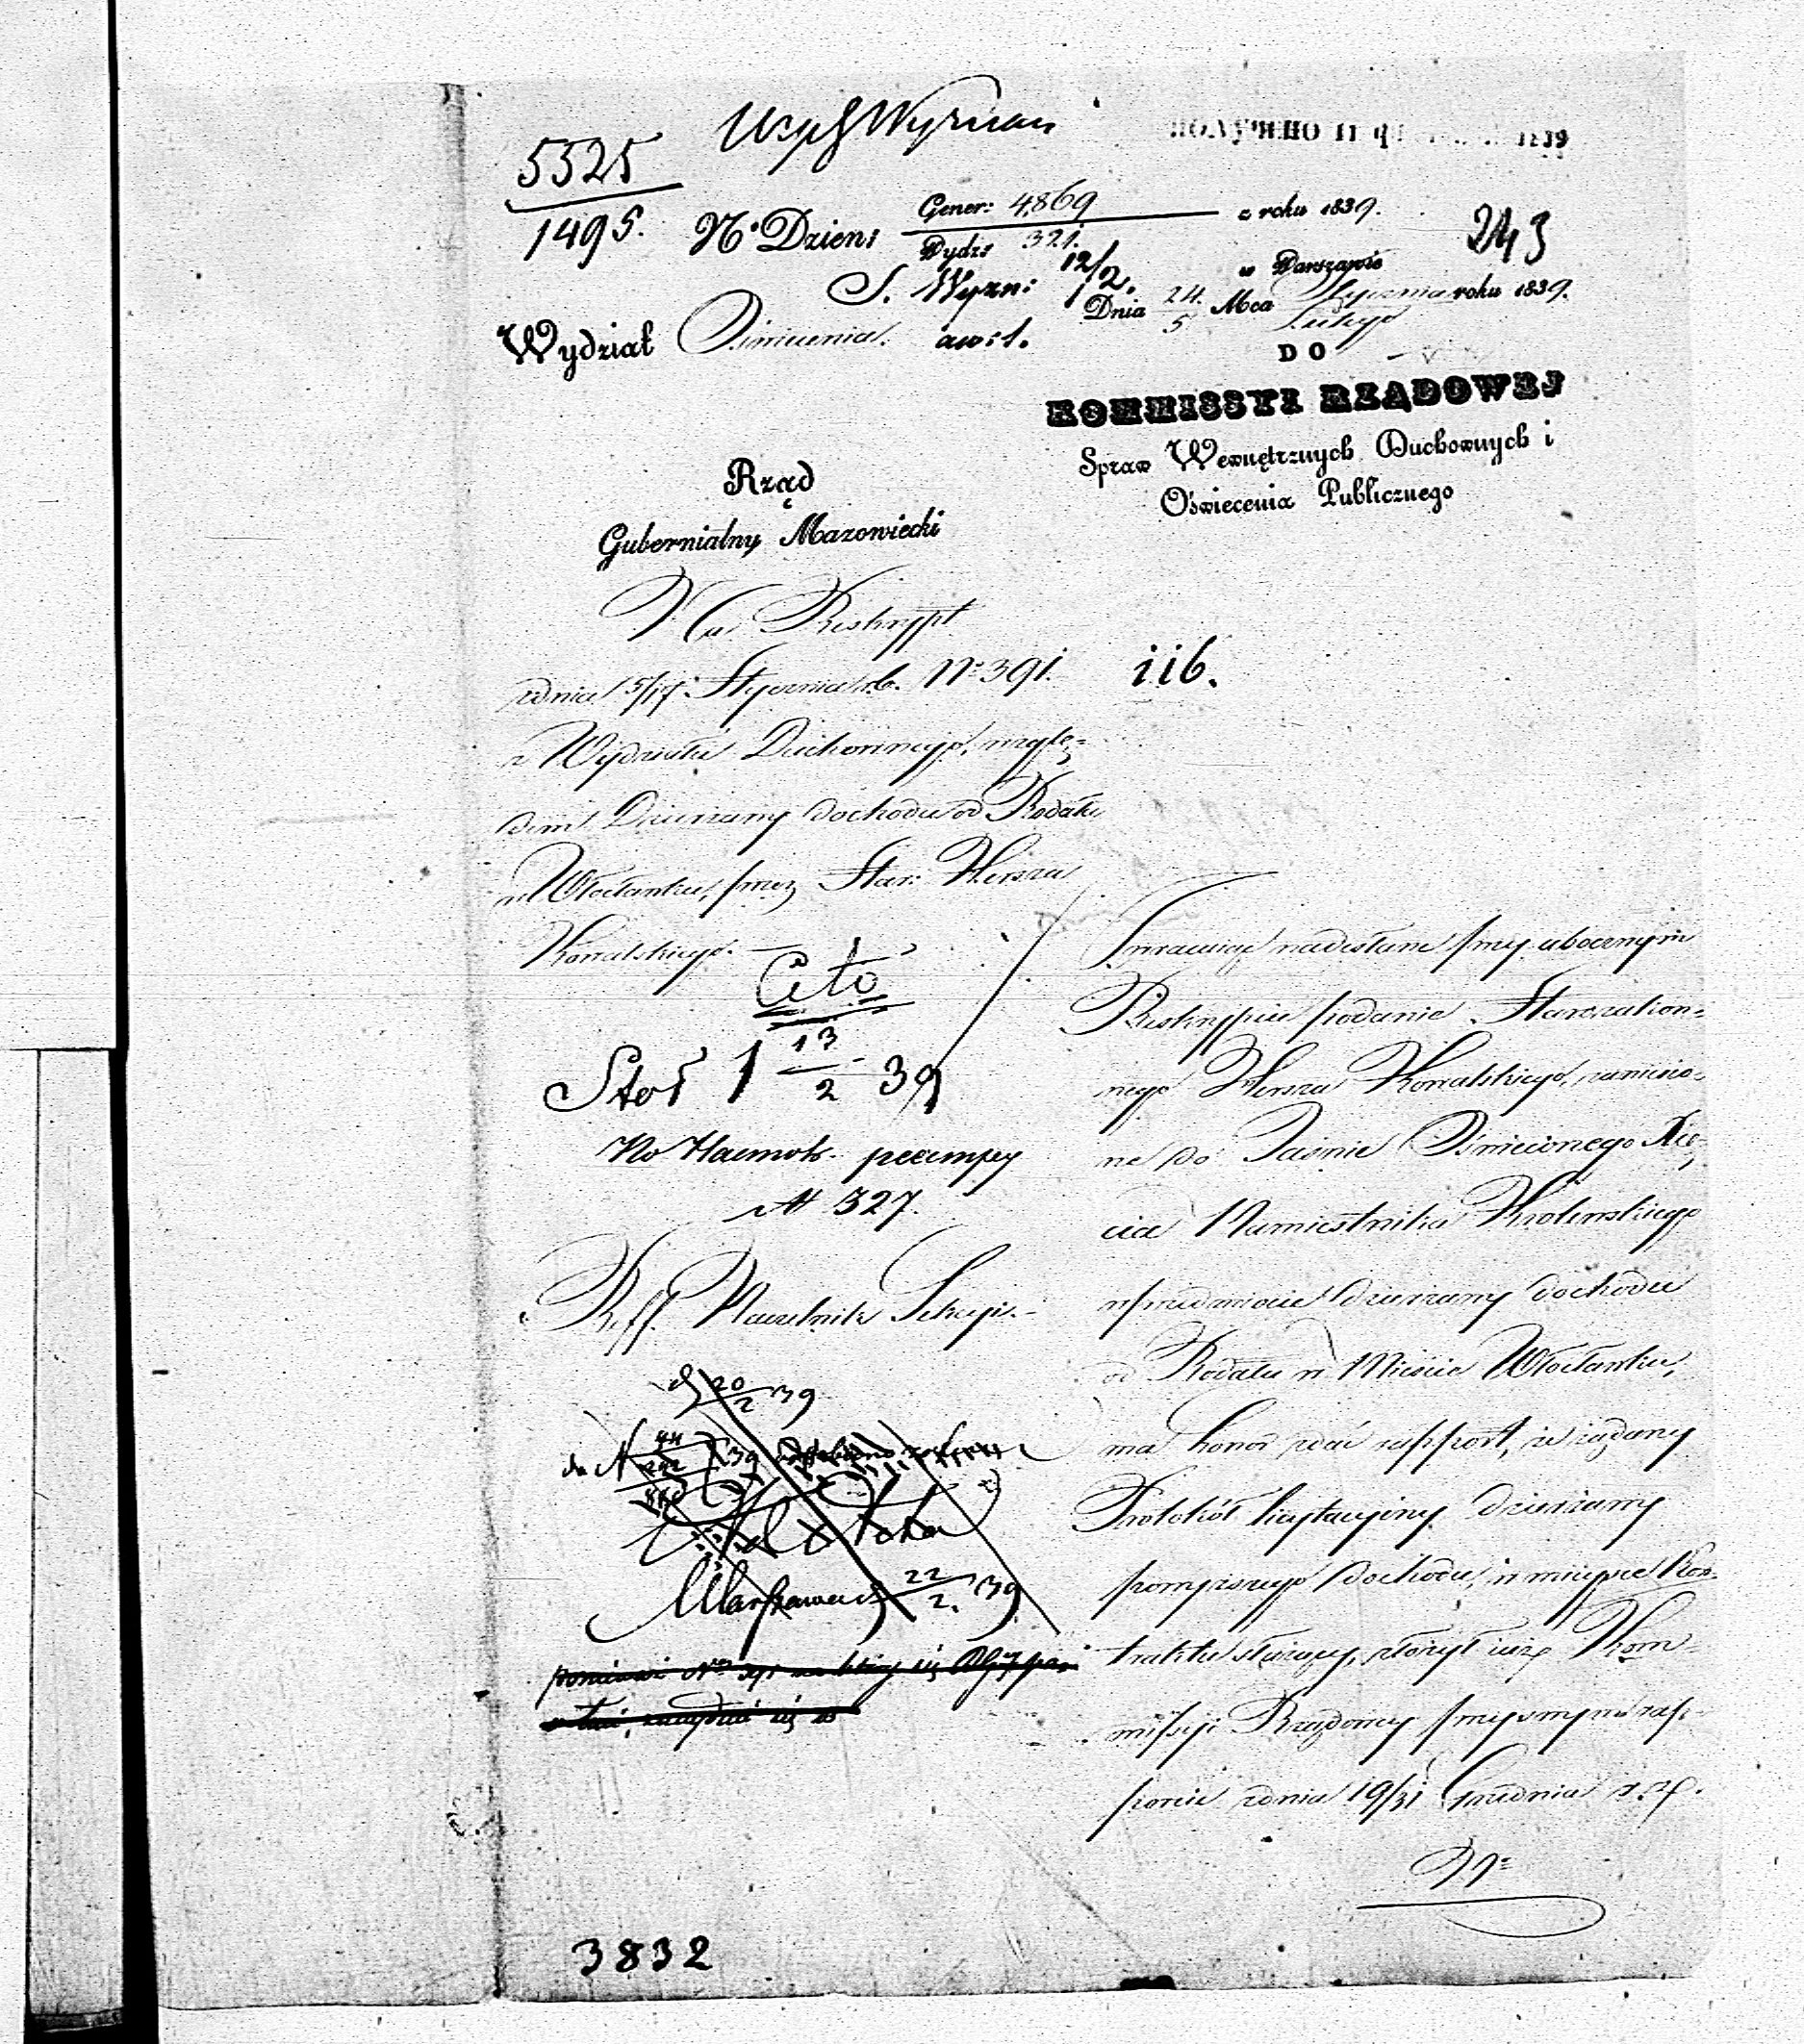 5525
1495.
ПОЛУЧЕНО 11
1839
N.º Dzien:
Gener: 4869
Wydz: 321.
z roku 1839.
243
S. Wyzn: 12/2.
w Warszawie
Dnia 24./5 Mca Stycznia/Lutego roku 1839.
Wydział Oświecenia.
DO
KOMMISSYI RZĄDOWEJ
Spraw Wewnętrznych Duchownych i
Oświecenia Publicznego
Rząd
Gubernialny Mazowiecki
Na Reskrypt
zdnia 5/17 Stycznia r.b. Nº 391.
z Wydziału Duchownego, wzglę-
dem Dzierżawy dochodu od Rodału
w Włocławku, przez Star: Hersza
Kowalskiego.
116.
Cito
Stoł 1 13/2 39
№ 327.
Reff. Naczelnik Sekcyi.
20/2 39
22/2. 39
Zwracając nadesłane przy ubocznym
Reskrypcie podanie Starozakon-
nego Hersza Kowalskiego, zaniesio-
ne do Jaśnie Oświeconego Xię-
cia Namiestnika Królewskiego
w przedmiocie dzierżawy dochodu
od Rodału w Mieście Włocławku,
ma honor zdać rapport, że żądany
Protokół licytacyjny dzierżawy
powyższego dochodu, w miejsce Kon-
traktu służący, złożył już Kom-
missyi Rządowej przy swym rap-
porcie zdnia 19/31 Grudnia r.z.
3832